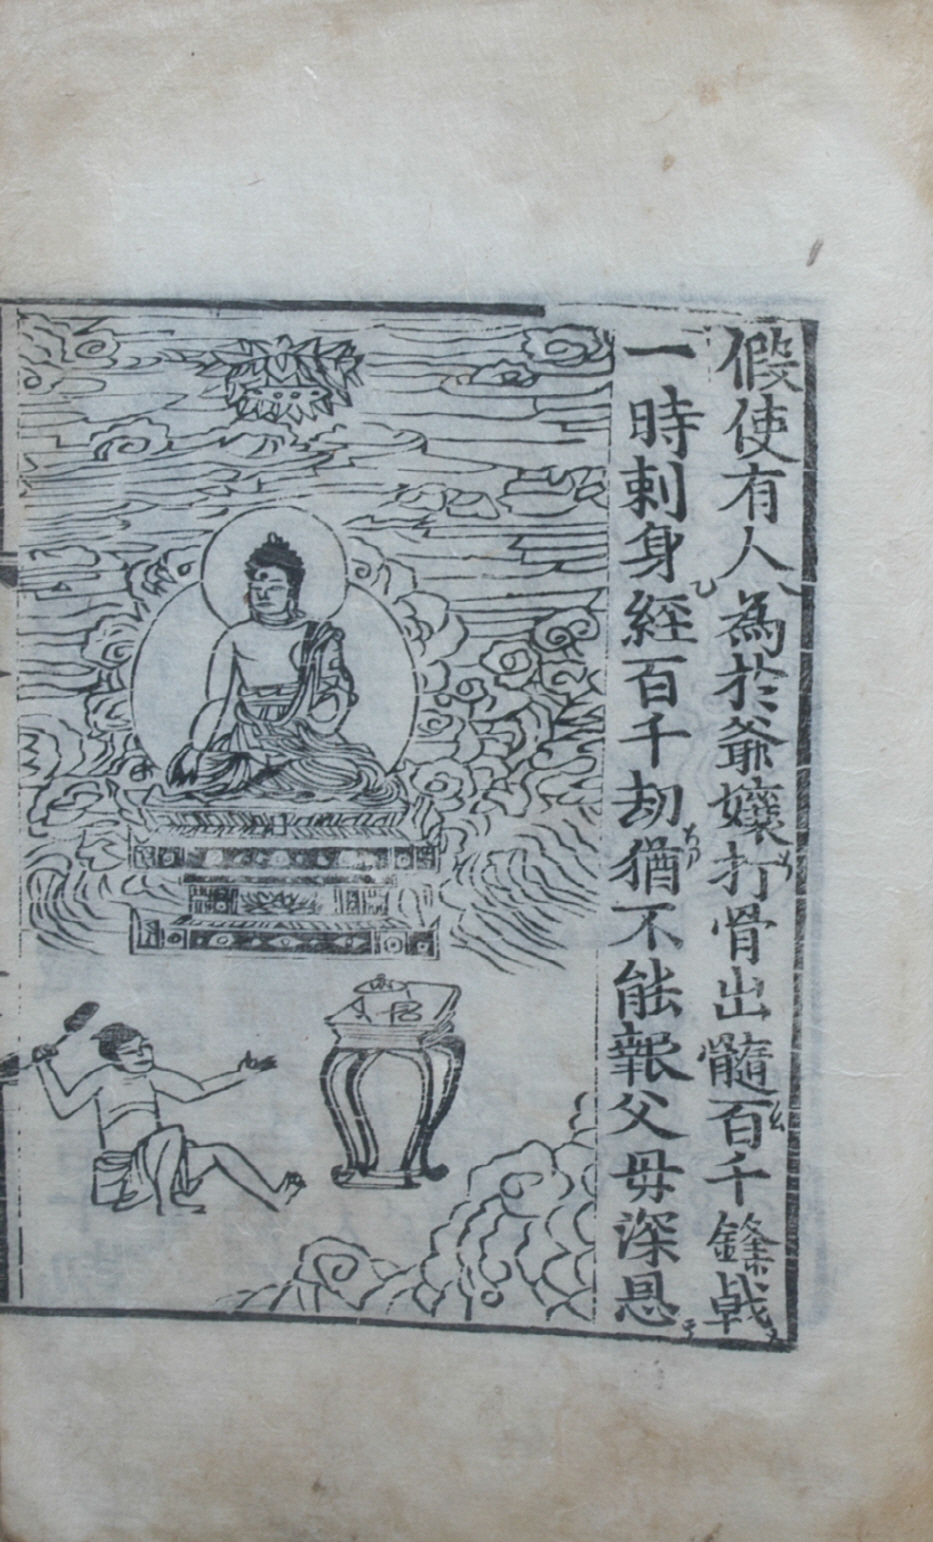 假使有人為於爺孃打骨出髓百千鋒戟
一時刺身經百千劫猶不能報父母深恩